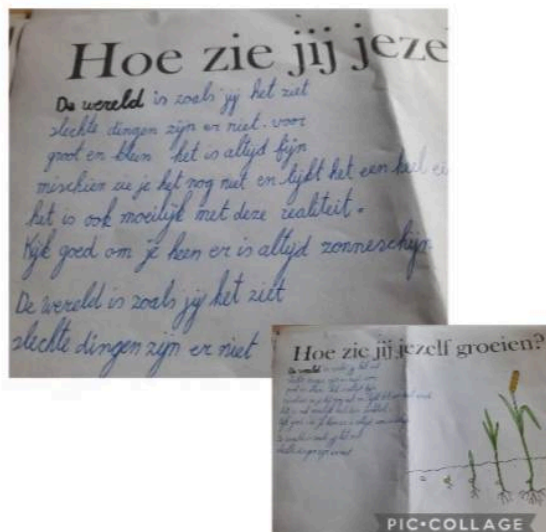 Hoe zie jij jeze
De wereld is zoals jij het ziet
slechte dingen zijn er niet. voor
groot en klein het is altijd fijn
mischien zie je het nog niet en lijkt het een heel ei
het is ook moeilijk met deze realiteit.
Kijk goed om je heen er is altijd zonneschijn
De wereld is zoals jij het ziet
slechte dingen zijn er niet
Hoe zie jij jezelf groeien?
De wereld is zoals jij het ziet
PIC•COLLAGE